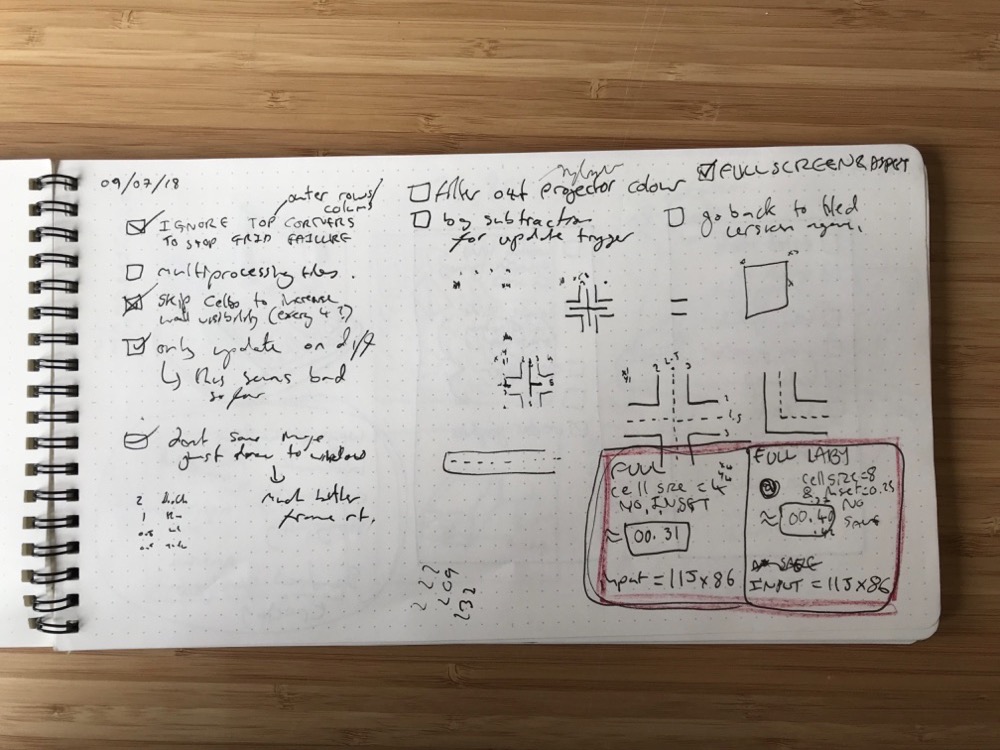 09/07/18
outer rows/
columns
IGNORE TOP CORNERS
TO STOP GRID FAILURE
multiprocessing tiles.
SKIP cells to increase
wall visibility (every 4?)
only update on diff
↳ this seems bad
so far
dont save image
just draw to window
↓
much better
frame rt.
2
1
filter out projector colour
by subtraction
for update trigger
FULLSCREEN & ASPECT
go back to tiled
version again.
2 1.5 3
x1
y1
2
1.5
3
FULL
cell size = 4
NO, INSET
≈ 00.31
input = 115 x 86
FULL LABY
cell size = 8
& inset=0.25
NO
SAVE
≈ 00.40
INPUT = 115 x 86
222
209
232